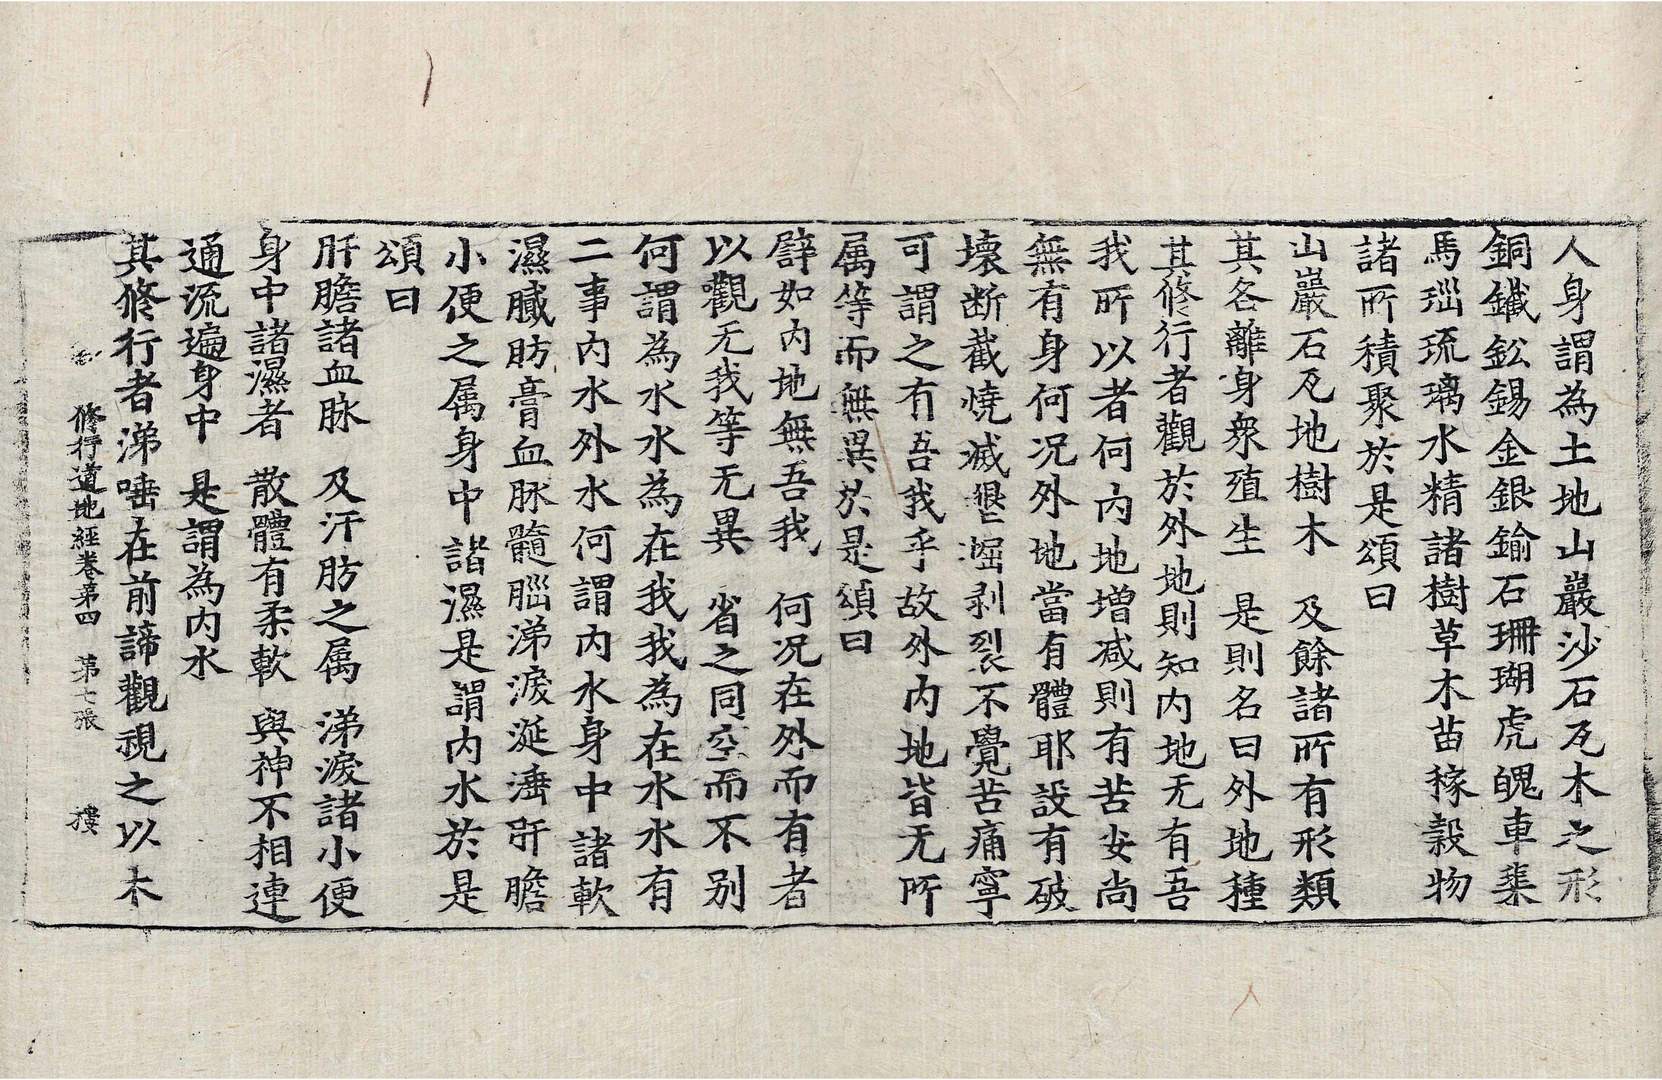 人身謂為土地山巖沙石瓦木之形
銅鐵鈆錫金銀鍮石珊瑚虎魄車𤦲
馬瑙琉璃水精諸樹草木苗稼穀物
諸所積聚於是頌曰
山巖石瓦地樹木　及餘諸所有形類
其各離身衆殖生　是則名曰外地種
其脩行者觀於外地則知內地无有吾
我所以者何內地增减則有苦安尚
無有身何况外地當有體耶設有破
壞断截燒滅墾掘剥裂不覺苦痛寧
可謂之有吾我乎故外內地皆无所
属等而無異於是頌曰
辟如內地無吾我　何况在外而有者
以觀无我等无異　省之同空而不别
何謂為水水為在我我為在水水有
二事內水外水何謂內水身中諸軟
濕膩肪膏血脉髓腦涕淚涎湩肝膽
小便之属身中諸濕是謂內水於是
頌曰
肝膽諸血脉　及汗肪之属　涕淚諸小便
身中諸濕者　散體有柔軟　與神不相連
通流遍身中　是謂為内水
其脩行者涕唾在前諦觀視之以木
脩行道地經卷第四　第七張　𢢔